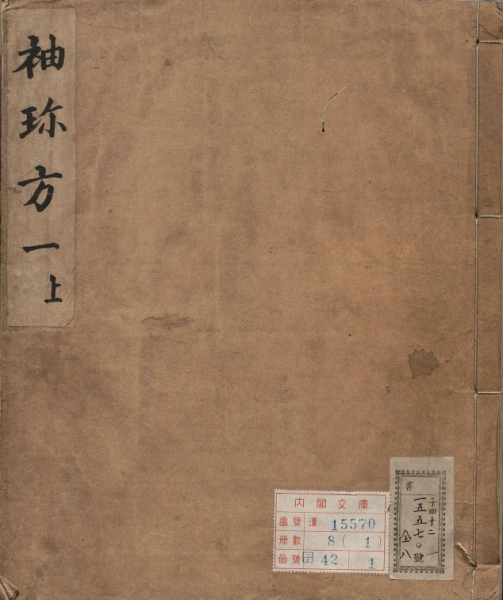 袖珎方一上
内閣文庫
番號 漢 15570
冊數 8(1)
函號 子 42 1
書
子四十二
一五五七〇號
全八